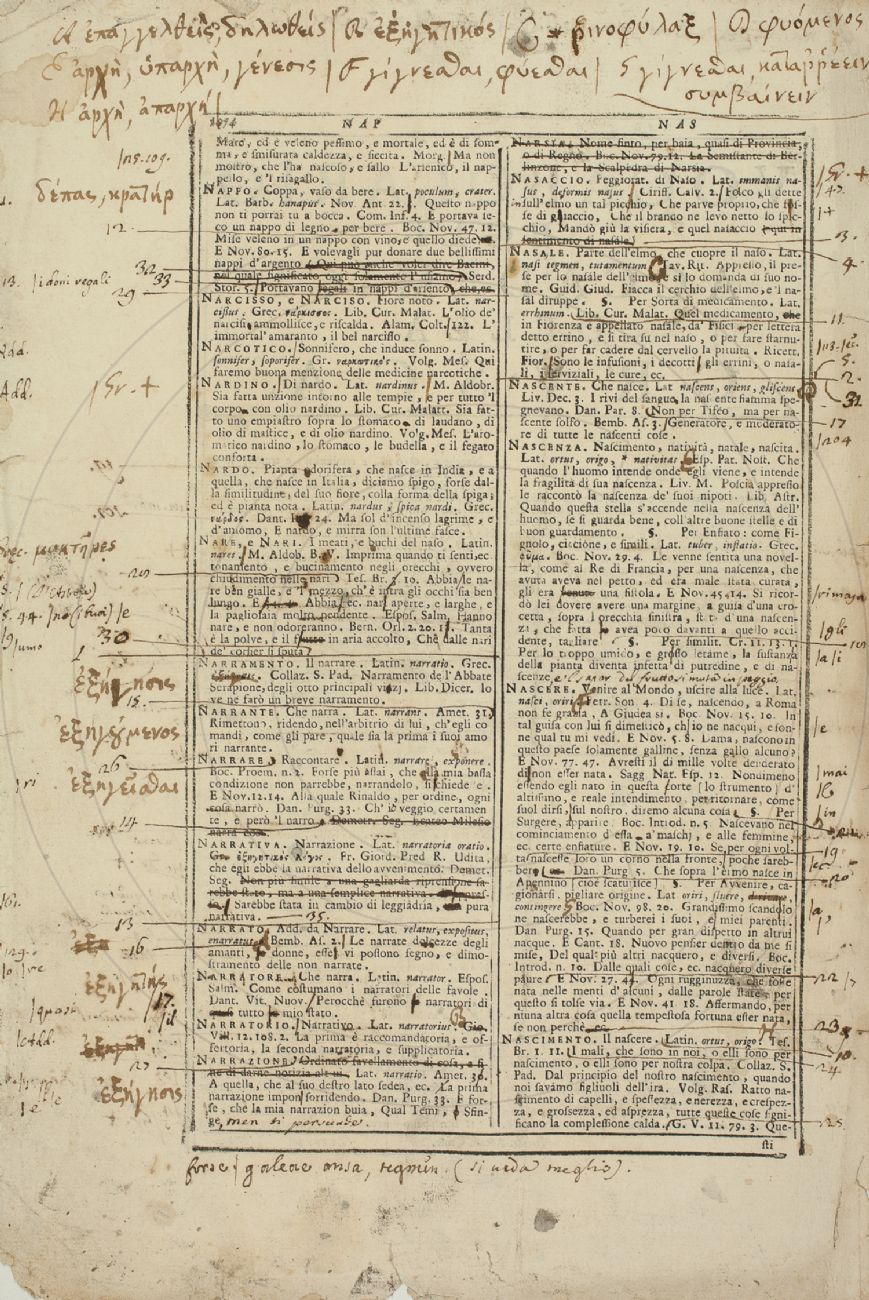 Α ἐπαγγελθείς, δηλωθείς | Β ἐξηγητικός | C + ῥινοφύλαξ | D φυόμενος
Ε ἀρχὴ, ὑπαρχὴ, γένεσις | F γίγνεσθαι, φύεσθαι | G γίγνεσθαι, καταῤῥέειν
συμβαίνειν
Η ἀρχὴ, ἀπαρχὴ |
NAP
NAS
Maro, ed è veleno pessimo, e mortale, ed è di som-
ma, e smisurata caldezza, e siccità. Morg. Ma non
mostrò, che l'ha nascoso, e fallo L'arsenico, il nap-
pello, e 'l risagallo.
NAPPO. Coppa, vaso da bere. Lat. poculum, crater.
Lat. Barb. hanapus. Nov. Ant 22. Questo nappo
non ti porrai tu a bocca. Com. Inf. 4. E portava se-
co un nappo di legno, per bere. Boc. Nov. 47. 12.
Mise veleno in un nappo con vino, e quello diede
E Nov. 80. 15. E volevagli pur donare due bellissimi
nappi d'argento
Stor. 5. Portavano in nappi d'ariento
NARCISSO, e NARCISO. Fiore noto. Lat. nar-
cissus. Grec. νάρκισσος. Lib. Cur. Malat. L'olio de'
narcisi ammollisce, e riscalda. Alam. Colt. 122. L'
immortal'amaranto, il bel narcisso.
NARCOTICO. Sonnifero, che induce sonno. Latin.
somnifer, soporifer. Gr. ναρκωτικός. Volg. Mes. Qui
faremo buona menzione delle medicine narcotiche.
NARDINO. Di nardo. Lat. nardinus. M. Aldobr.
Sia fatta unzione intorno alle tempie, e per tutto 'l
corpo con olio nardino. Lib. Cur. Malatt. Sia fat-
to uno empiastro sopra lo stomaco di laudano, di
olio di mastice, e di olio nardino. Volg. Mes. L'aro-
matico nardino, lo stomaco, le budella, e il fegato
conforta.
NARDO. Pianta odorifera, che nasce in India, e a
quella, che nasce in Italia, diciamo spigo, forse dal-
la similitudine, del suo fiore, colla forma della spiga;
ed è pianta nota. Latin. nardus, spica nardi. Grec.
νάρδος. Dant. 24. Ma sol d'incenso lagrime, e
d'amomo, E nardo, e mirra son l'ultime fasce.
NARE, e NARI. I meati, e buchi del naso. Latin.
nares. M. Aldob. B. V. Imprima quando ti senti, ec.
tonamento, e bucinamento negli orecchi, ovvero
chiudimento nelle nari Tes. Br. 5. 10. Abbia le na-
re ben gialle, e 'l mezzo, ch'è intra gli occhi sia ben
lungo. E Abbia, ec. nari aperte, e larghe, e
la pagliosaia molto pendente. Espos. Salm. Hanno
nare, e non odoreranno. Bern. Orl. 2. 20. 13. Tanta
è la polve, e il in aria accolto, Che dalle nari
de' corsier si sputa
NARRAMENTO. Il narrare. Latin. narratio. Grec.
Collaz. S. Pad. Narramento de l'Abbate
Serapione, degli otto principali vizj. Lib. Dicer. Io
ve ne farò un breve narramento.
NARRANTE. Che narra. Lat. narrans. Amet. 31.
Rimettono, ridendo, nell'arbitrio di lui, ch'egli co
mandi, come gli pare, quale sia la prima i suoi amo
ri narrante.
NARRARE. Raccontare. Latin. narrare, exponere.
Boc. Proem. n. 2. Forse più assai, che alla mia bassa
condizione non parrebbe, narrandolo, si chiede.
E Nov. 12. 14. Alla quale Rinaldo, per ordine, ogni
cosa narrò. Dan. Purg. 33. Ch' i' veggio certamen-
te, e però 'l narro.
NARRATIVA. Narrazione. Lat. narratoria oratio.
Gr. ἐξηγητικὸς λόγος. Fr. Giord. Pred R. Udita,
che egli ebbe la narrativa dello avvenimento. Demet.
Seg. Non più simile a una gagliarda riprensione sa-
rebbe stato, ma a una semplice narrativa.
Sarebbe stata in cambio di leggiadria, pura
narrativa. 35.
NARRATO. Add. da Narrare. Lat. relatus, expositus,
enarratus. Bemb. As. 2. Le narrate dolcezze degli
amanti, donne, esse vi possono segno, e dimo-
stramento delle non narrate.
NARRATORE. Che narra. Latin. narrator. Espos.
Salm. Come costumano i narratori delle favole.
Dant. Vit. Nuov. Perocchè furono narratori di
quasi tutto mio stato.
NARRATORIO. Narrativo. Lat. narratorius. Gio.
Vill. 12. 108. 2. La prima è raccomandatoria, e of-
fertoria, la seconda narratoria, e supplicatoria.
NARRAZIONE. Ordinato favellamento di cosa, a fi-
ne di darne notizia altrui. Lat. narratio. Amet. 36.
A quella, che al suo destro lato sedea, ec. La prima
narrazione impon sorridendo. Dan. Purg. 33. E for-
se, che la mia narrazion buia, Qual Temi, Sfin-
ge, men ti persuade.
NARSIA. Nome finto, per baia, quasi di Provincia,
o di Regno. Boc. Nov. 79. 12. La Semistante di Ber-
linzone, e la Scalpedra di Narsia.
NASACCIO. Peggiorat. di Naso. Lat. immanis na-
sus, deformis nasus. Ciriff. Calv. 2. Folco gli dette
in sull'elmo un tal picchio, Che parve proprio, che fos-
se di ghiaccio, Che il brando ne levò netto lo spic-
chio, Mandò giù la visiera, e quel nasaccio (qui in
sentimento di nasale)
NASALE. Parte dell'elmo, che cuopre il naso. Lat.
nasi tegmen, tutamentum. Tav. Rit. Appresso, il pre-
se per lo nasale dell'elmo e si lo domanda di suo no-
me. Guid. Giud. Fiacca il cerchio dell'elmo, e 'l na-
sal diruppe. §. Per Sorta di medicamento. Lat.
errhinum. Lib. Cur. Malat. Quel medicamento, che
in Fiorenza è appellato nasale, da' Fisici, per lettera
detto errino, e si tira su nel naso, o per fare starnu-
tire, o per far cadere dal cervello la pituita. Ricett.
Fior. Sono le infusioni, i decotti, gli errini, o nasa-
li, i serviziali, le cure, ec.
NASCENTE. Che nasce. Lat nascens, oriens, gliscens.
Liv. Dec. 3. I rivi del sangue la nascente fiamma spe-
gnevano. Dan. Par. 8. Non per Tifeo, ma per na-
scente solfo. Bemb. As. 3. Generatore, e moderato-
re di tutte le nascenti cose.
NASCENZA. Nascimento, natività, natale, nascita.
Lat. ortus, origo, nativitas. Esp. Pat. Nost. Che
quando l'huomo intende onde egli viene, e intende
la fragilità di sua nascenza. Liv. M. Poscia appresso
le raccontò la nascenza de' suoi nipoti. Lib. Astr.
Quando questa stella s'accende nella nascenza dell'
huomo, se si guarda bene, coll'altre buone stelle e di
buon guardamento. §. Per Enfiato: come Fi-
gnolo, ciccione, e simili. Lat. tuber, inflatio. Grec.
φῦμα. Boc. Nov. 29. 4. Le venne sentita una novel-
la, come al Re di Francia, per una nascenza, che
avuta aveva nel petto, ed era male stata curata,
gli era una fistola. E Nov. 45. 14. Si ricor-
dò lei dovere avere una margine, a guisa d'una cro-
cetta, sopra l'orecchia sinistra, stata d'una nascen-
za, che fatta avea poco davanti a quello acci-
dente, tagliare §. Per similit. Cr. 11. 13. 1.
Per lo troppo umido, e grosso letame, la sustanza
della pianta diventa infetta di putredine, e di na-
scenze,
NASCERE. Venire al Mondo, uscire alla luce. Lat.
nasci, oriri. Petr. Son. 4. Di se, nascendo, a Roma
non fe grazia, A Giudea si. Boc. Nov. 15. 10. In
tal guisa con lui si dimesticò, ch'io ne nacqui, e son-
ne qual tu mi vedi. E Nov. 5. 8. Dama, nascono in
questo paese solamente galline, senza gallo alcuno?
E Nov. 77. 47. Avresti il di mille volte desiderato
di non esser nata. Sagg Nat. Esp. 12. Nondimeno
essendo egli nato in questa sorte (lo strumento) d'
altissimo, e reale intendimento, per ritornare, come
suol dirsi, sul nostro, diremo alcuna cosa §. Per
Surgere, apparire. Boc. Introd. n. 5. Nascevano nel
cominciamento d'essa a' maschi, e alle femmine,
ec. certe enfiature. E Nov. 19. 10. Se per ogni vol-
ta nascesse loro un corno nella fronte, poche sareb-
ber Dan. Purg 5. Che sopra l'ermo nasce in
Apennino (cioè scaturisce) §. Per Avvenire, ca-
gionarsi, pigliare origine. Lat oriri, fluere,
contingere Boc. Nov. 98. 20. Grandissimo scandolo
ne nascerebbe, e turberei i suoi, e' miei parenti.
Dan. Purg. 15. Quando per gran dispetto in altrui
nacque. E Cant. 18. Nuovo pensier dentro da me si
mise, Del qual più altri nacquero, e diversi. Boc.
Introd. n. 10. Dalle quali cose, ec. nacquero diverse
paure. E Nov. 27. 44. Ogni rugginuzza, che fosse
nata nelle menti d'alcuni, dalle parole state per
questo si tolse via. E Nov. 41 18. Affermando, per
niuna altra cosa quella tempestosa fortuna esser nata,
se non perchè
NASCIMENTO. Il nascere. Latin. ortus, origo. Tes.
Br. 1. 11. I mali, che sono in noi, o elli sono per
nascimento, o elli sono per nostra colpa. Collaz. S.
Pad. Dal principio del nostro nascimento, quando
noi savamo figliuoli dell'ira. Volg. Ras. Ratto na-
scimento di capelli, e spessezza, e nerezza, e crespez-
za, e grossezza, ed asprezza, tutte queste cose signi-
ficano la complessione calda. G. V. 11. 79. 3. Que-
sti
forse galeae ansa, tegmen. (si veda meglio).
δέπας, κρατὴρ
12
13. doni regali
32
33
29
Add.
Add.
Grec. μυκτῆρες
30
ἐξήγησις
15.
ἐξηγούμενος
26
ἐξηγεῖσθαι
14
13
16
ἐξηγητὴς
17.
27
ἐξήγησις
3.
4.
11.
5.
2.
31
17
204
19.
20
22
23
24.
25.